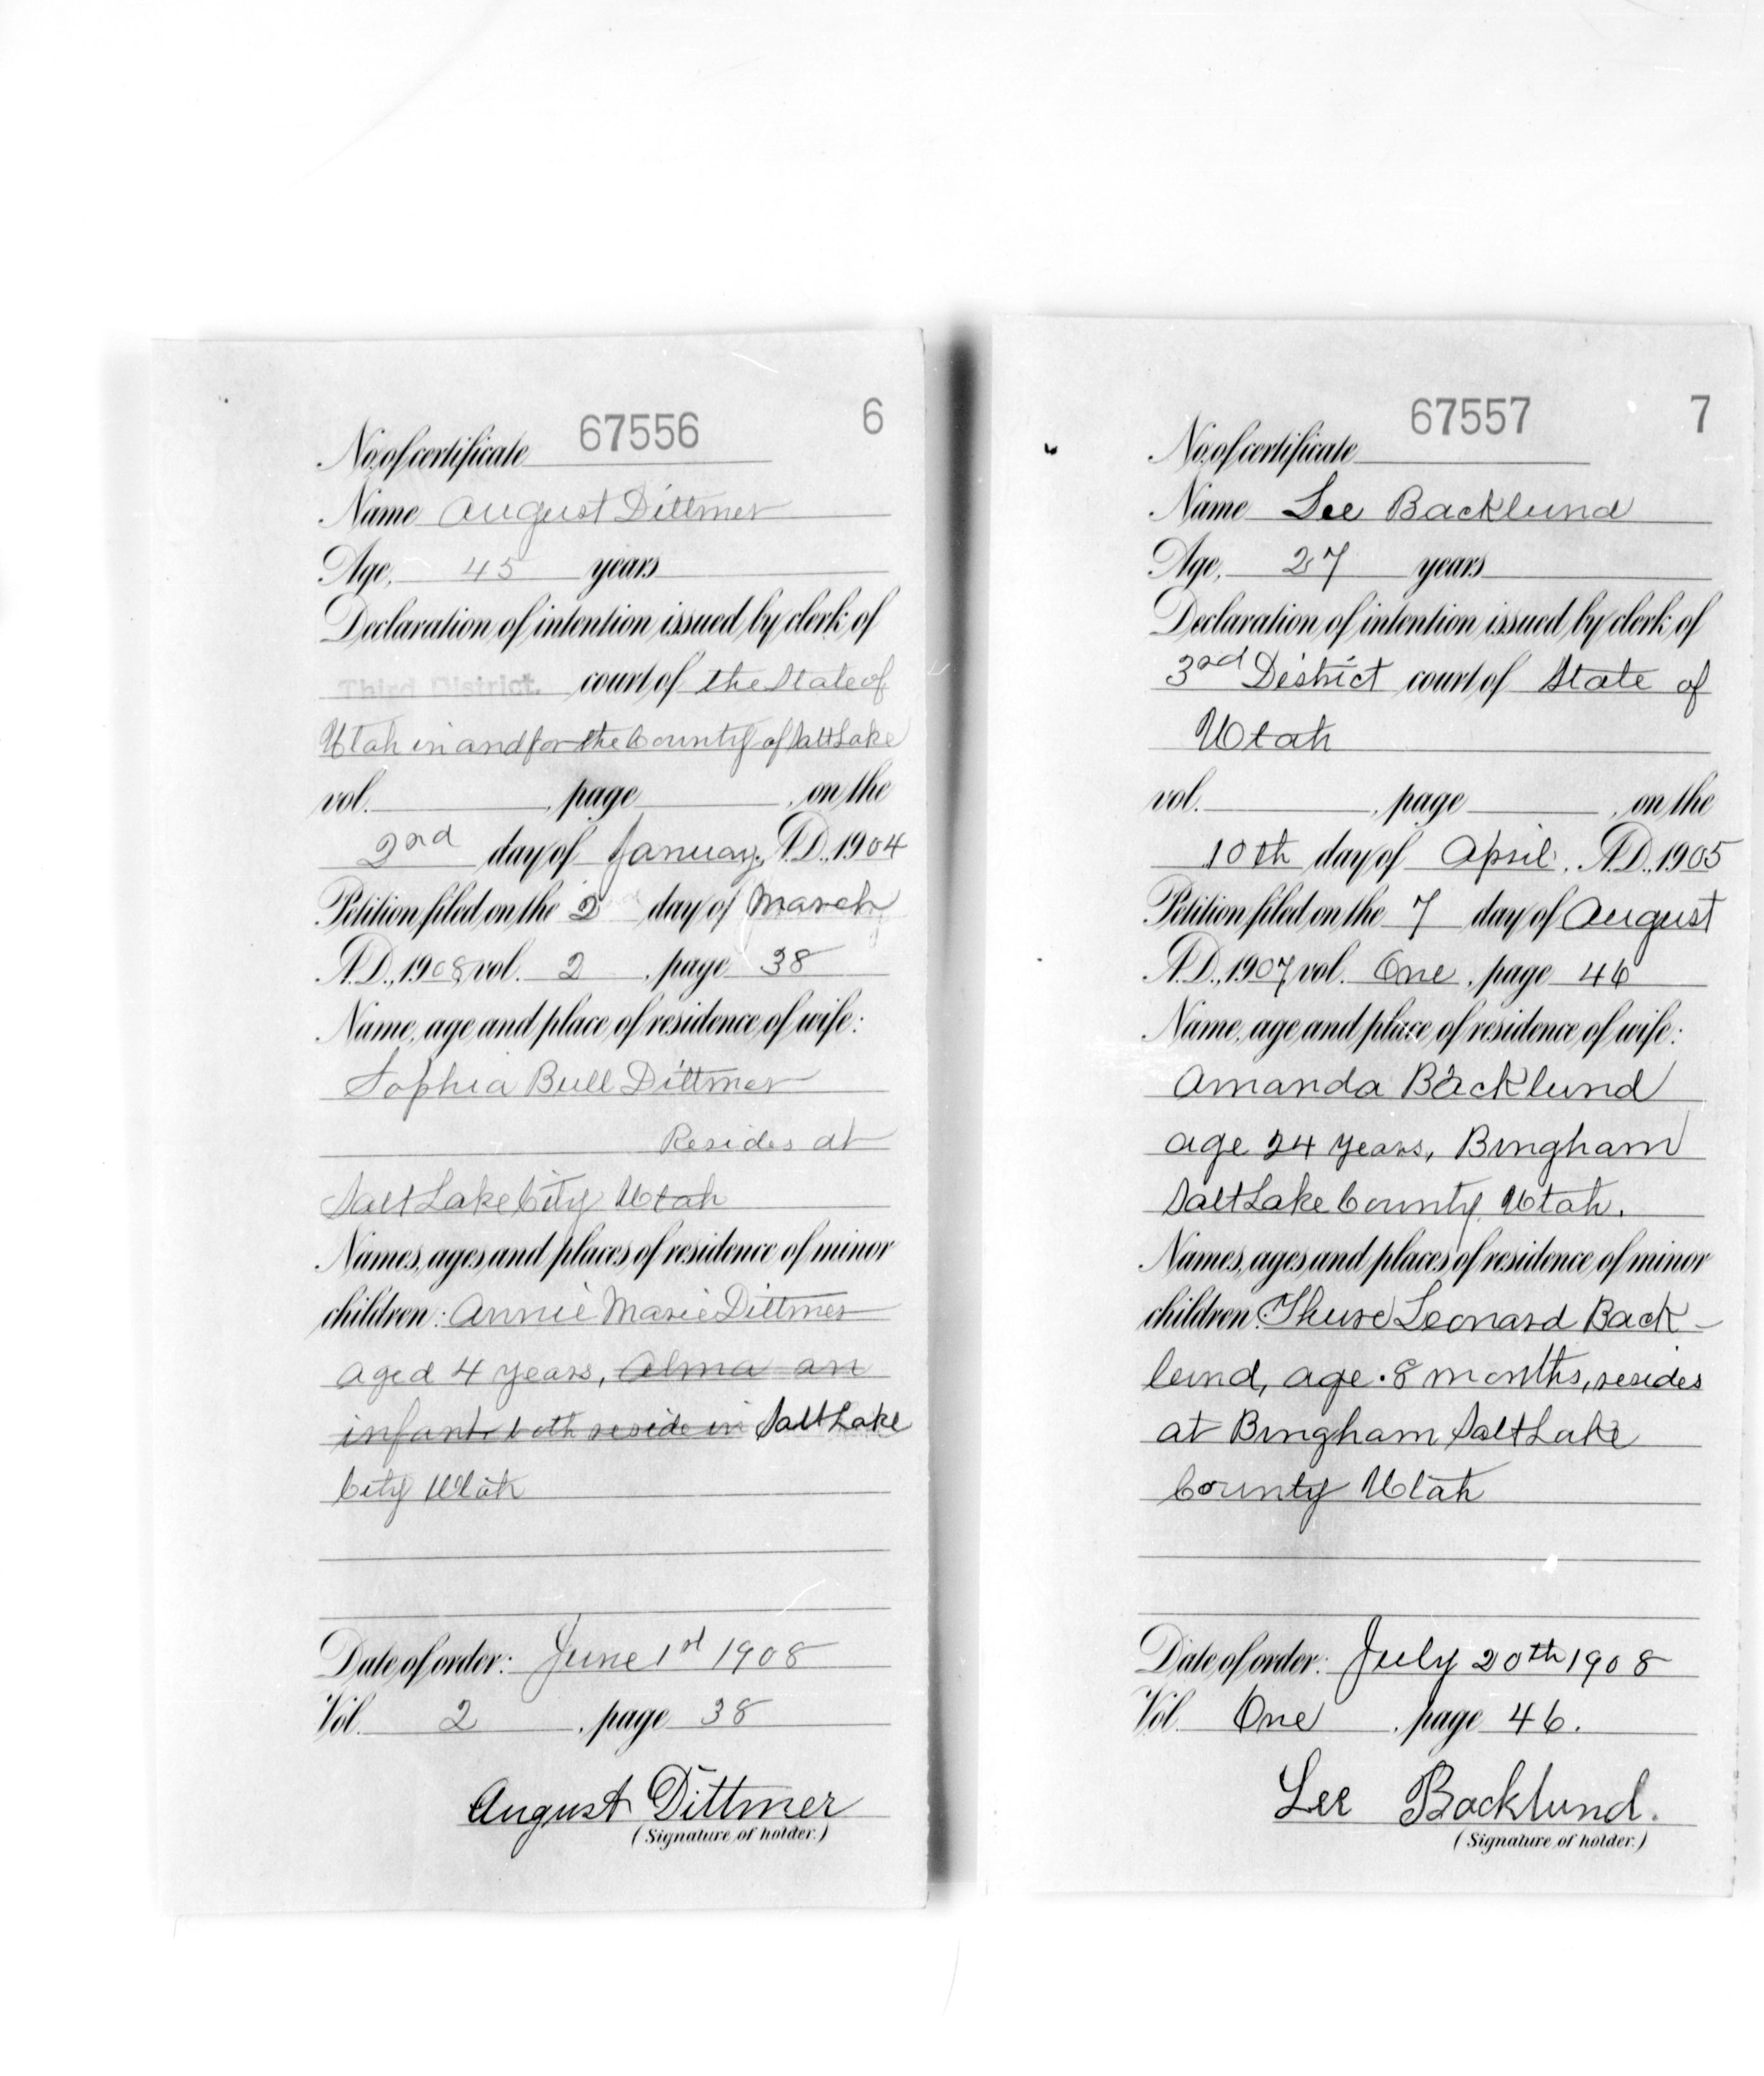 67556 6
No. of certificate
Name August Dittmer
Age, 45 years
Declaration of intention issued by clerk of
Third District. court of the State of
Utah in and for the County of Salt Lake
vol. , page , on the
2nd day of January, A.D., 1904
Petition filed on the 2 day of March
A.D., 1908, vol. 2 , page 38
Name, age and place of residence of wife:
Sophia Bull Dittmer
Resides at
Salt Lake City Utah
Names, ages and places of residence of minor
children: Annie Marie Dittmer
aged 4 years, Alma an
infant both reside in Salt Lake
City Utah
Date of order: June 1st 1908
Vol. 2 , page 38
August Dittmer
(Signature of holder.)
67557 7
No. of certificate
Name Lee Backlund
Age, 27 years
Declaration of intention issued by clerk of
3rd District court of State of
Utah
vol. , page , on the
10th day of April, A.D., 1905
Petition filed on the 7 day of August
A.D., 1907, vol. One , page 46
Name, age and place of residence of wife:
Amanda Backlund
age 24 years, Bingham
Salt Lake County, Utah.
Names, ages and places of residence of minor
children: Leonard Back-
lund, age 8 months, resides
at Bingham Salt Lake
County Utah
Date of order: July 20th 1908
Vol. One , page 46.
Lee Backlund.
(Signature of holder.)